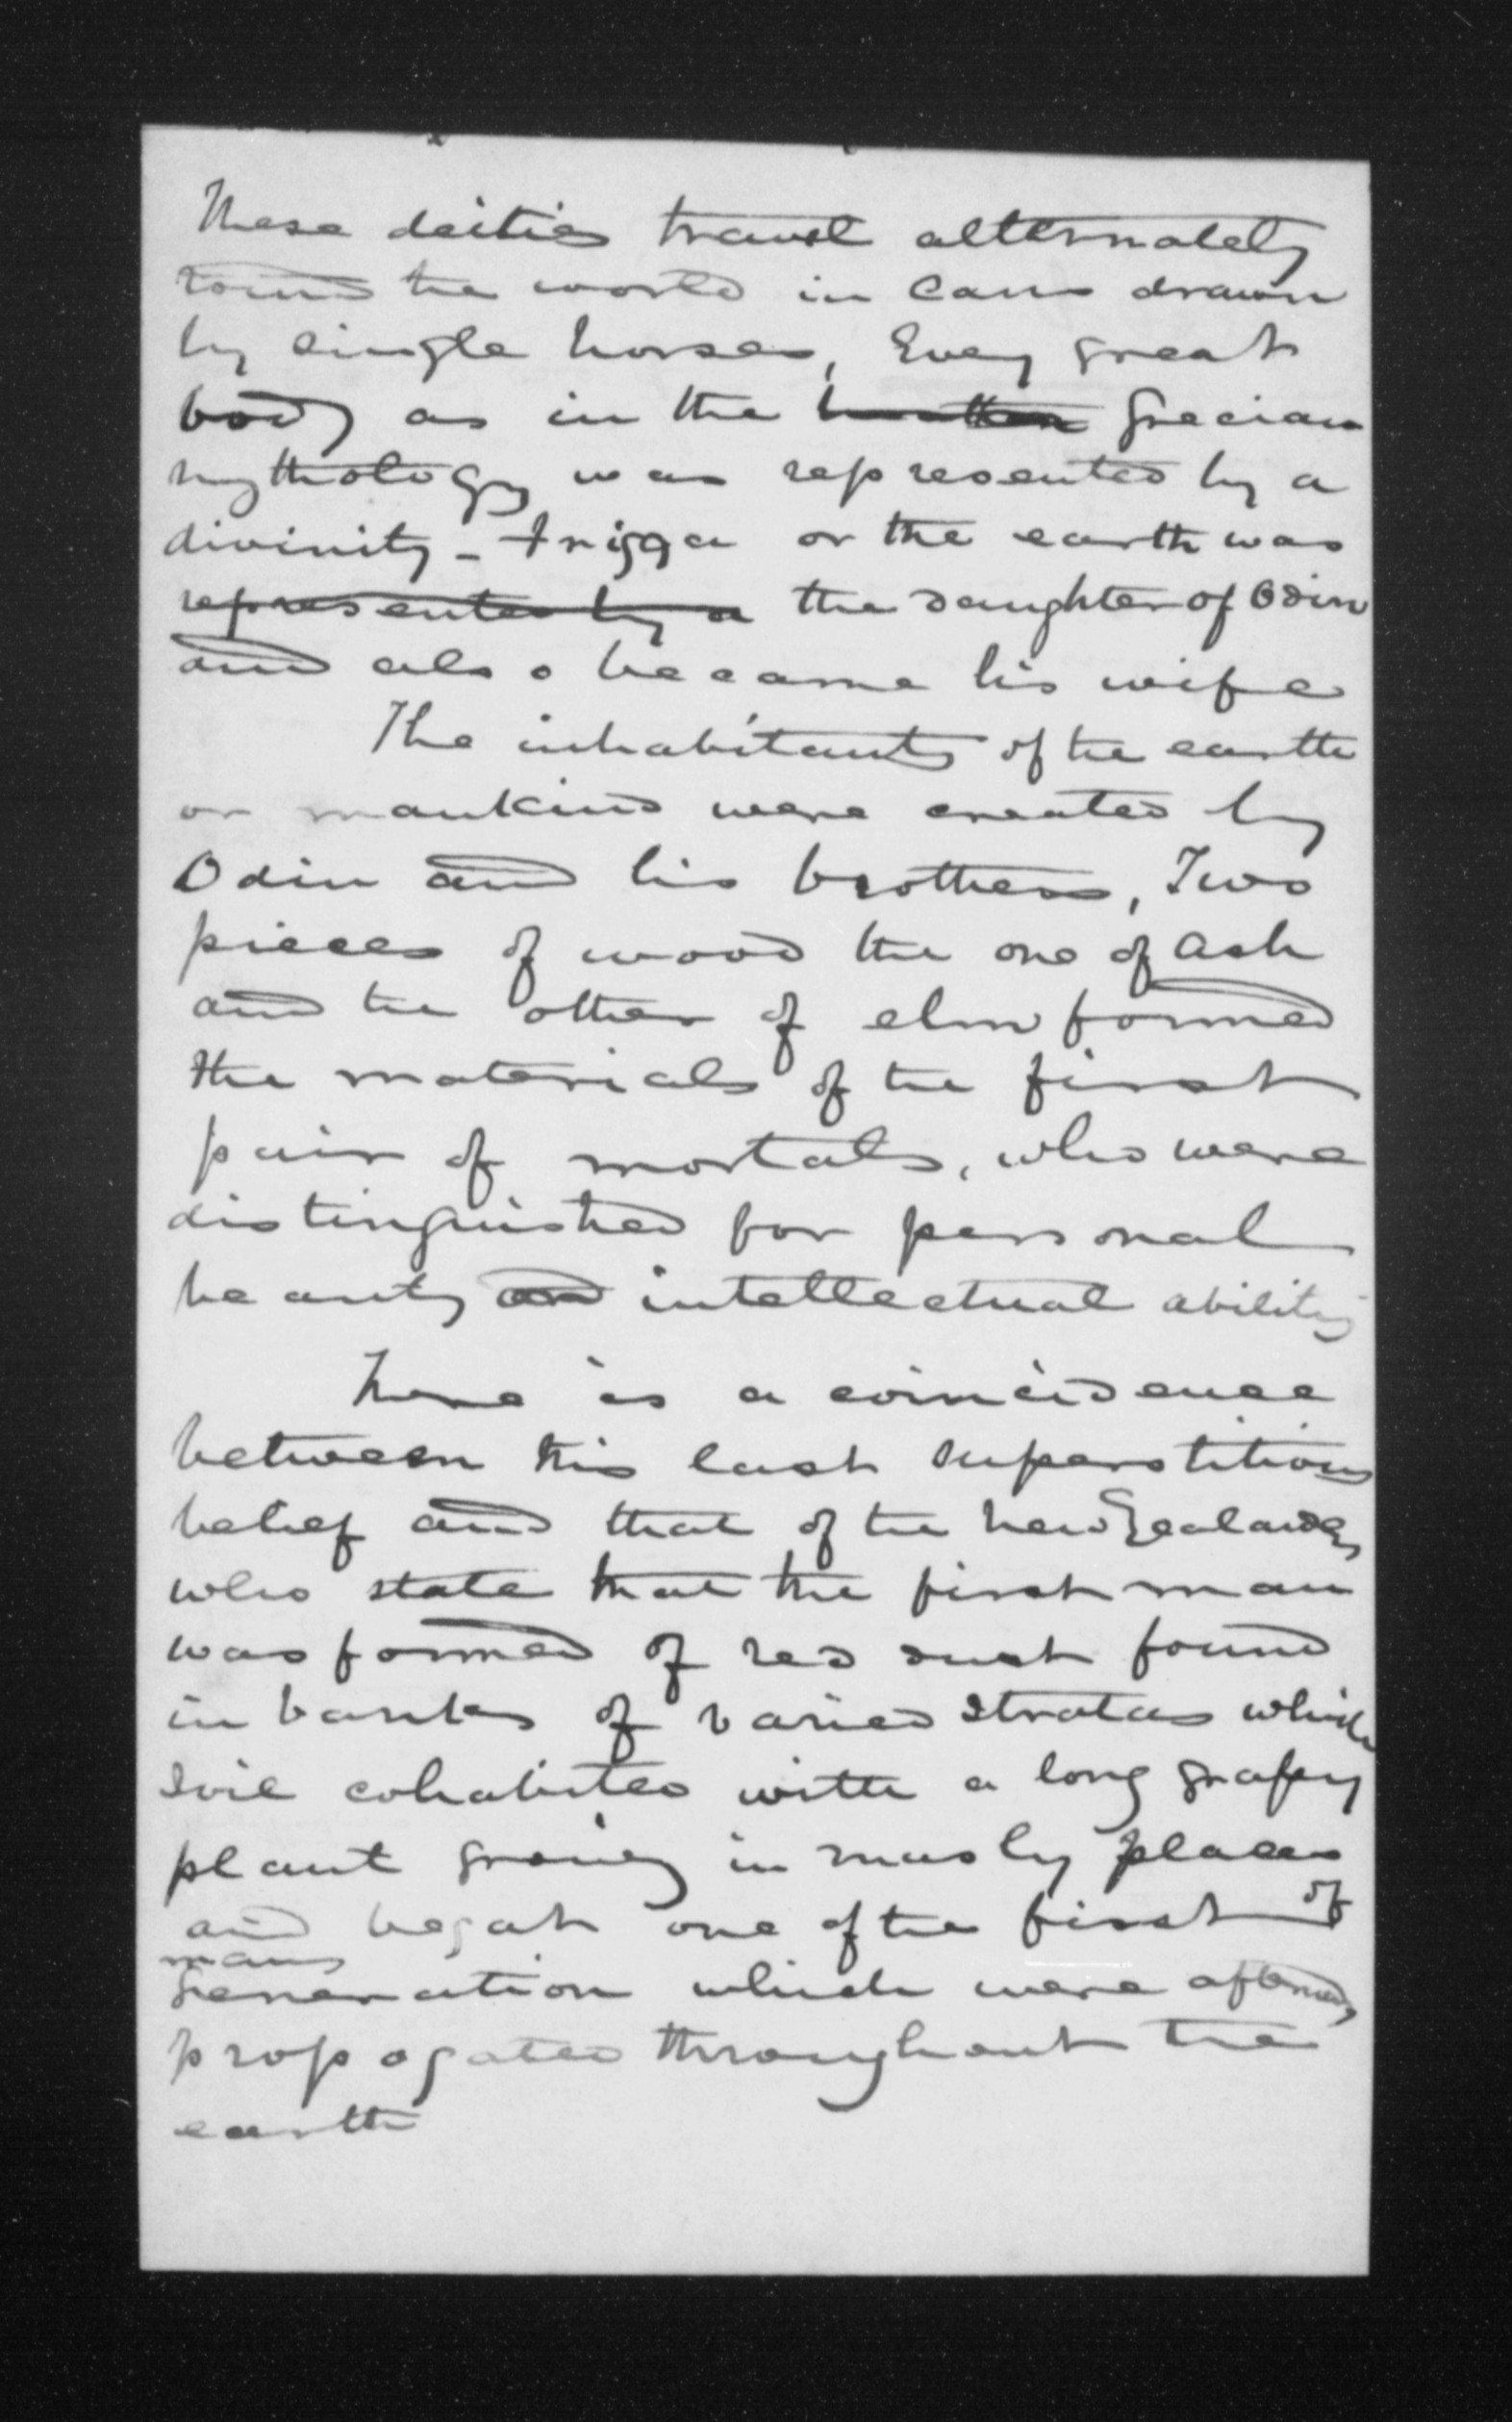 These deities travel alternately
round the world in cars drawn
by single horses, Every great
body as in the heathen Grecian
mythology was represented by a
divinity - Frigga or the earth was
represented by a the daughter of Odin
and also became his wife
The inhabitants of the earth
or mankind were created by
Odin and his brothers, Two
pieces of wood the one of ash
and the other of elm formed
the materials of the first
pair of mortals, who were
distinguished for personal
beauty and intellectual ability
There is a coincidence
between this last superstitious
belief and that of the New Zealanders
who state that the first man
was formed of red dust found
in banks of varied stratas which
soil cohabited with a long
plant growing in places
and begat one of the first of
mans
generation which were afterwards
propogated throughout the
earth